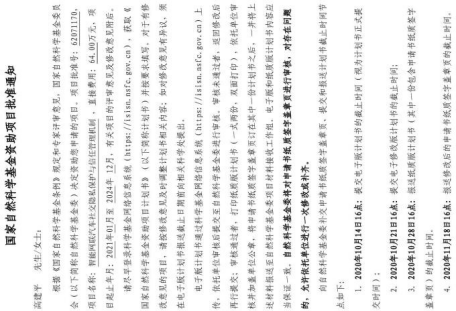 国家自然科学基金资助项目批准通知
高建平 先生/女士:
根据《国家自然科学基金条例》规定和专家评审意见,国家自然科学基金委员
会(以下简称自然科学基金委)决定资助您申请的项目。项目批准号:62071170,
项目名称:智能网联汽车社交隐私保护与信任管理机制,直接费用:64.00万元,项
目起止年月:2021年01月至 2024年 12月,有关项目的评审意见及修改意见附后。
请尽早登录科学基金网络信息系统(https://isisn.nsfc.gov.cn),获取《
国家自然科学基金资助项目计划书》(以下简称计划书)并按要求填写。对于有修
改意见的项目,请按修改意见及时调整计划书相关内容;如对修改意见有异议,须
在电子版计划书报送截止日期前向相关科学处提出。
电子版计划书通过科学基金网络信息系统(https://isisn.nsfc.gov.cn)上
传,依托单位审核后提交至自然科学基金委进行审核。审核未通过者,返回修改后
再行提交;审核通过者,打印纸质版计划书(一式两份,双面打印),依托单位审
核并加盖单位公章,将申请书纸质签字盖章页订在其中一份计划书之后,一并将上
述材料报送至自然科学基金委项目材料接收工作组。电子版和纸质版计划书内容应
当保证一致。自然科学基金委将对申请书纸质签字盖章页进行审核,对存在问题
的,允许依托单位进行一次修改或补齐。
向自然科学基金委补交申请书纸质签字盖章页、提交和报送计划书截止时间节
点如下:
1、2020年10月14日16点:提交电子版计划书的截止时间(视为计划书正式提
交时间);
2、2020年10月21日16点:提交电子修改版计划书的截止时间;
3、2020年10月28日16点:报送纸质版计划书(其中一份包含申请书纸质签字
盖章页)的截止时间。
4、2020年11月18日16点:报送修改后的申请书纸质签字盖章页的截止时间。